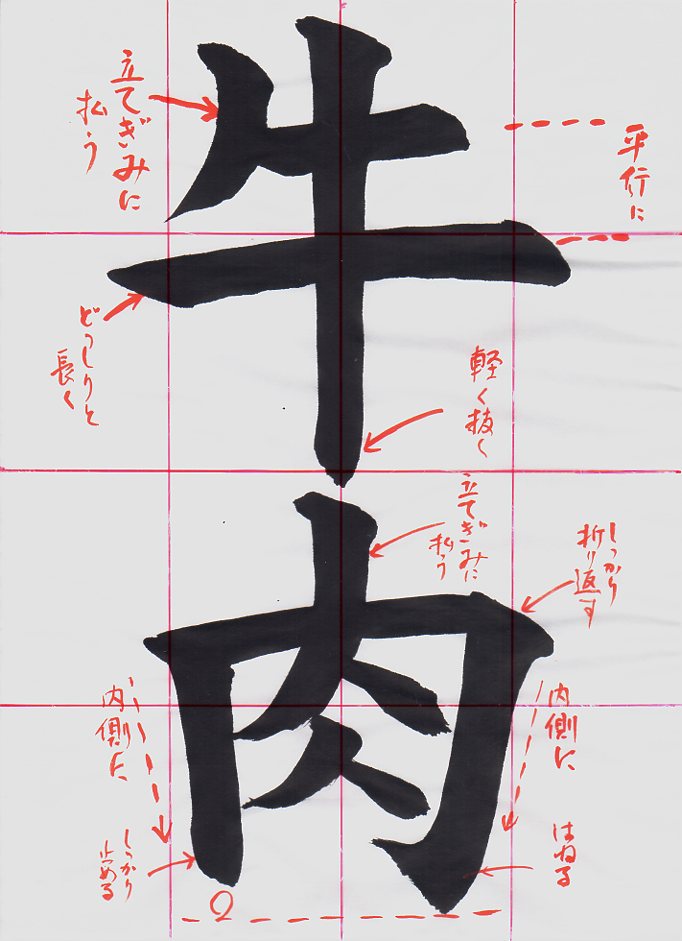 牛肉
立てぎみに
払う
平行に
どっしりと
長く
軽く抜く
立てぎみに
払う
しっかり
折り返す
内側に
内側に
しっかり
止める
はねる